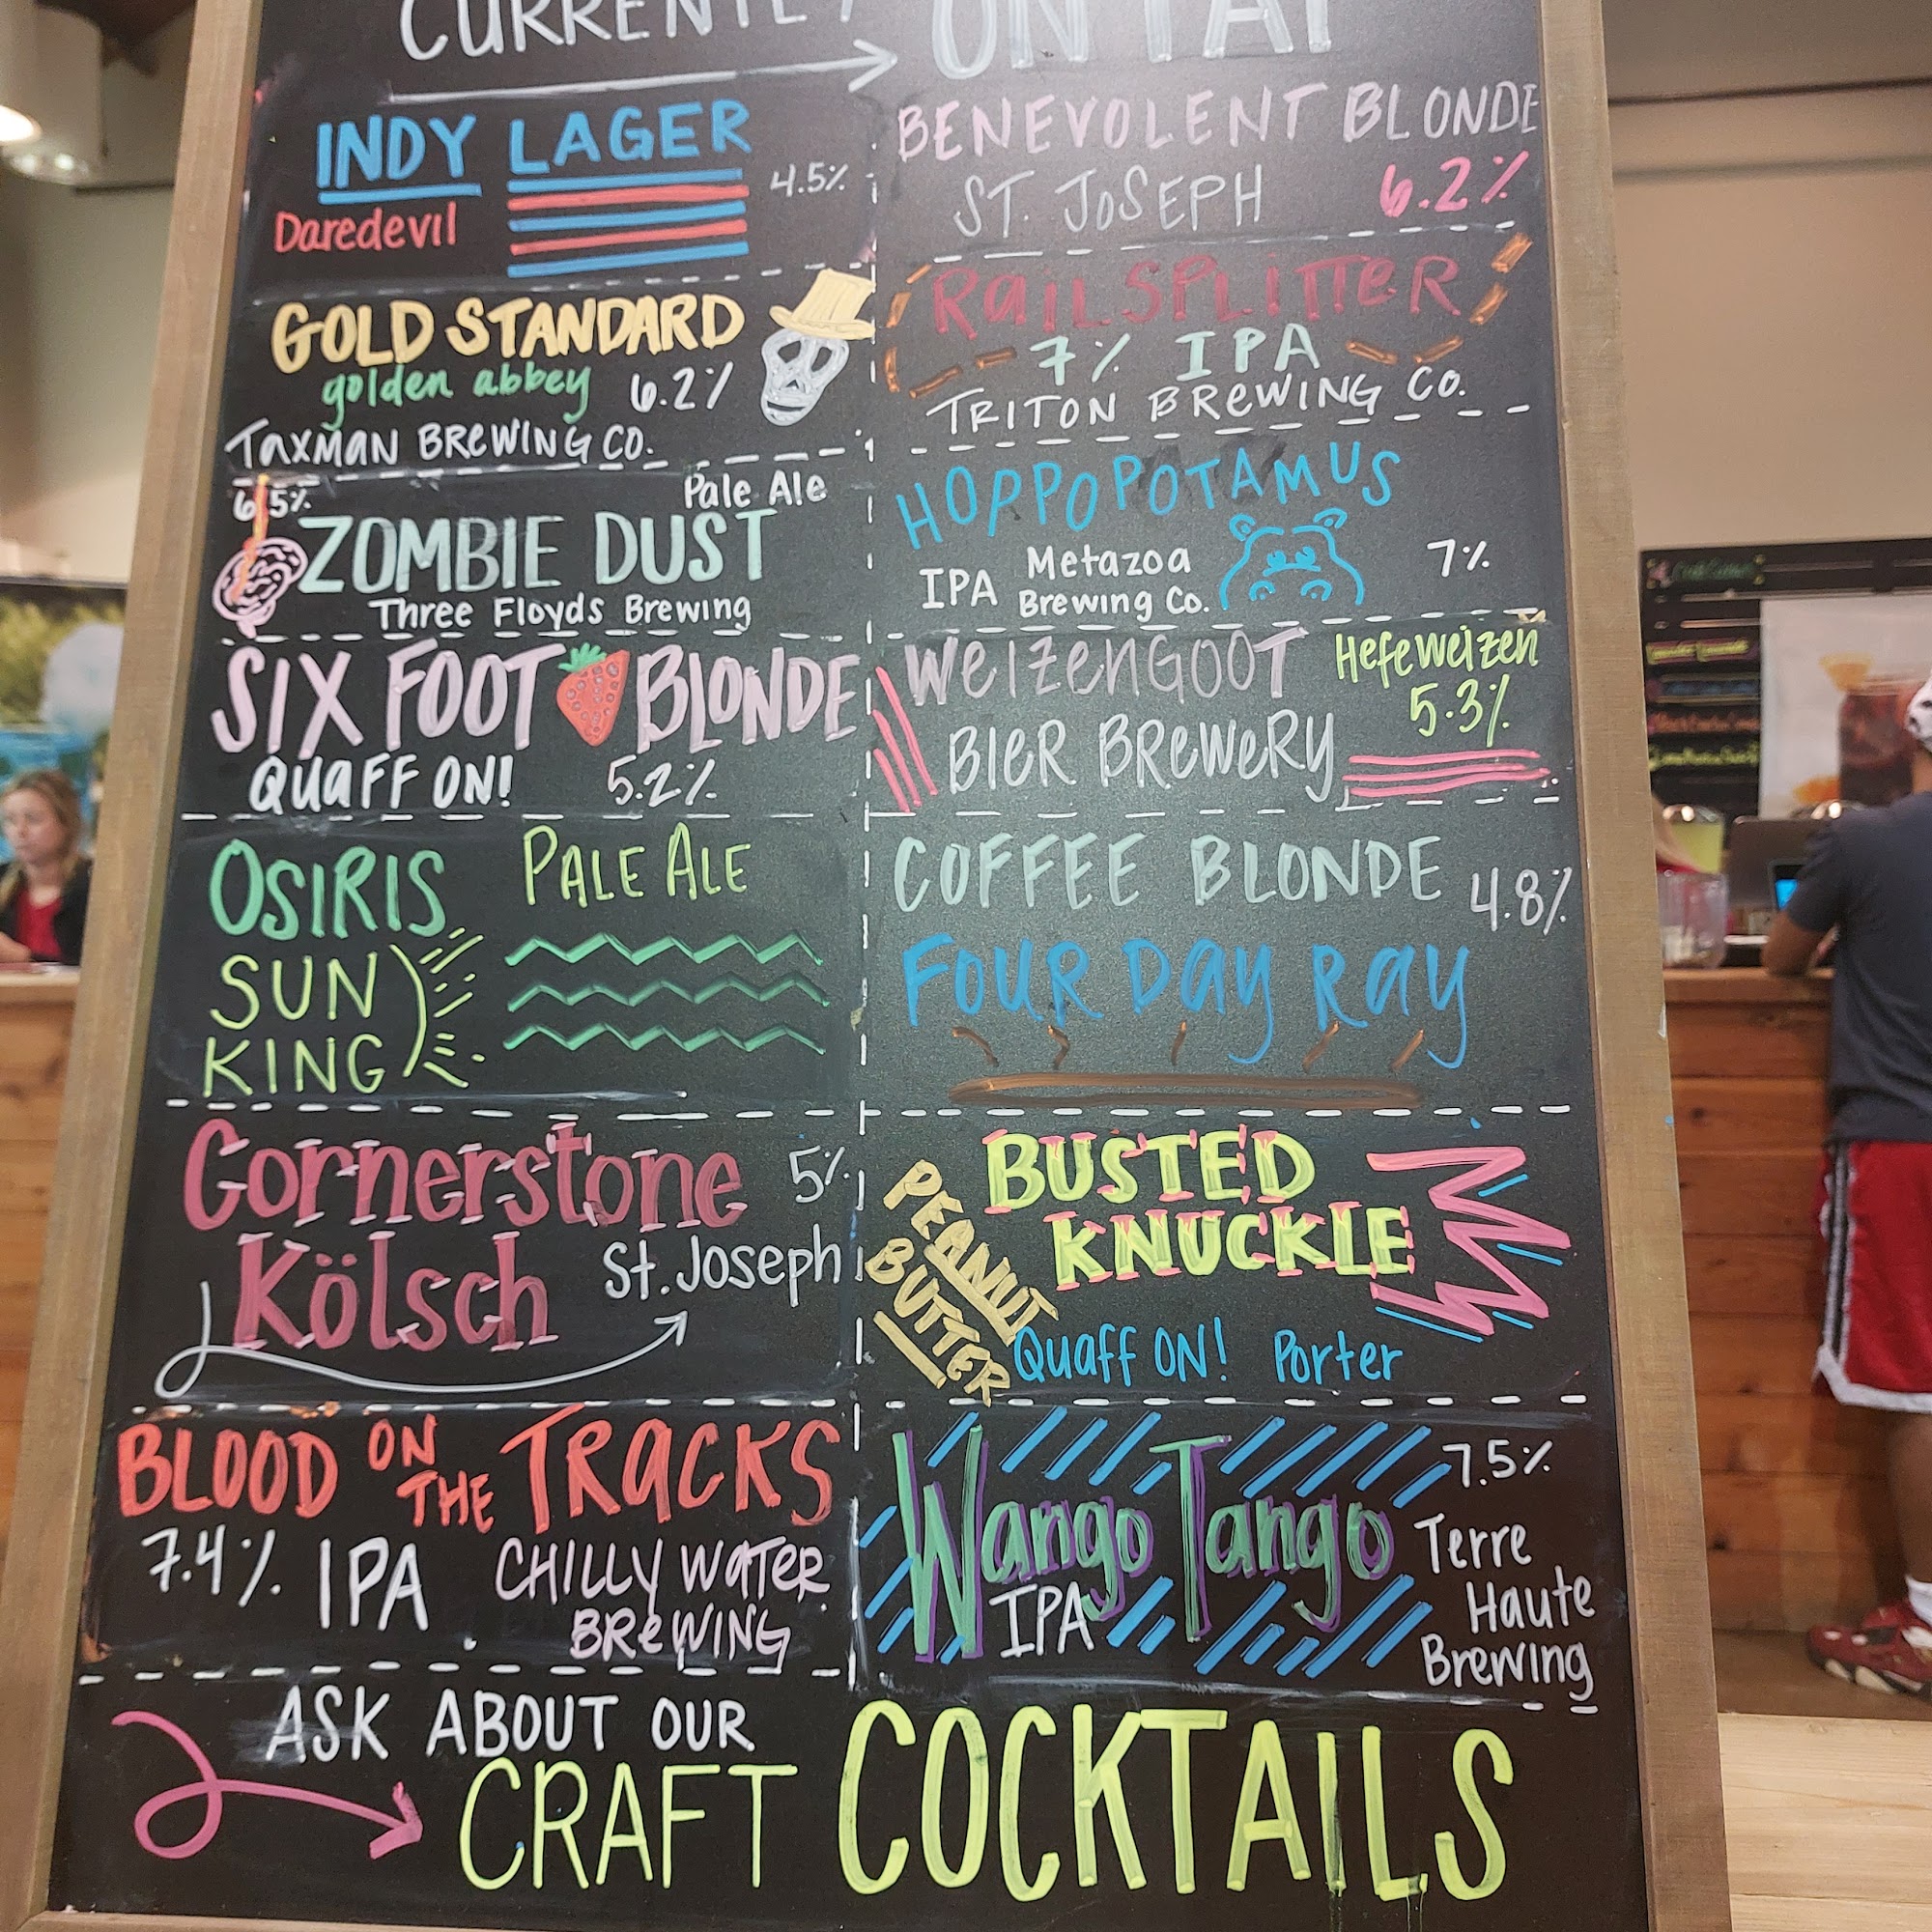 CURRENTLY ON TAP
INDY LAGER
4.5%
Daredevil
GOLD STANDARD
golden abbey 6.2%
TAXMAN BREWING CO.
6.5% Pale Ale
ZOMBIE DUST
Three Floyds Brewing
SIX FOOT BLONDE
QUAFF ON! 5.2%
OSIRIS PALE ALE
SUN
KING
Cornerstone 5%
Kölsch St. Joseph
BLOOD ON THE TRACKS
7.4% IPA CHILLY WATER
BREWING
BENEVOLENT BLONDE
ST. JOSEPH 6.2%
RAILSPLITTER
7% IPA
TRITON BREWING CO.
HOPPOPOTAMUS
IPA Metazoa 7%
Brewing Co.
WEIZENGOOT Hefeweizen
5.3%
BIER BREWERY
COFFEE BLONDE 4.8%
FOUR DAY RAY
BUSTED
KNUCKLE
PEANUT
BUTTER
Quaff ON! Porter
Wango Tango 7.5%
IPA
Terre
Haute
Brewing
ASK ABOUT OUR
CRAFT COCKTAILS